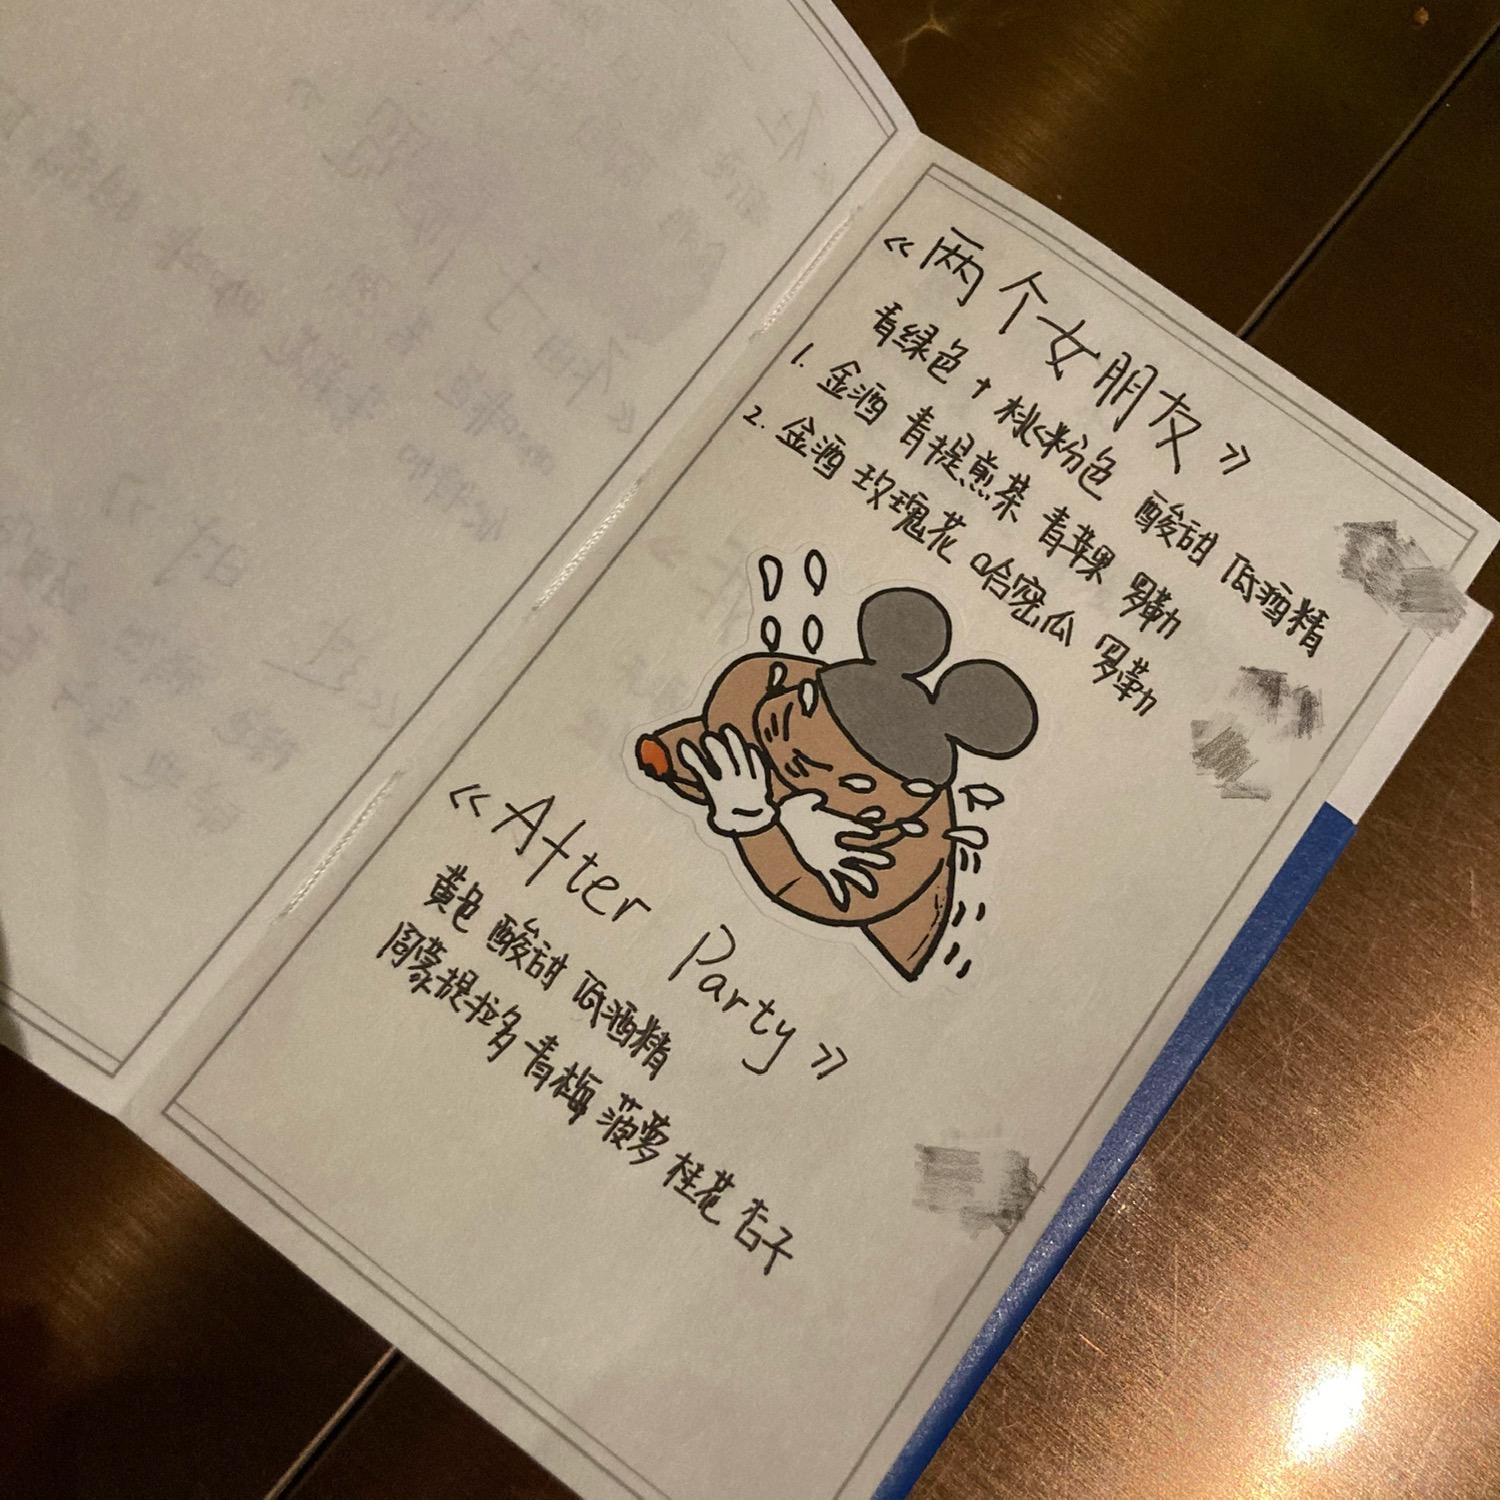 《两个女朋友》
青绿色+桃粉色 酸甜 低酒精
1. 金酒 青提煎茶 青稞 罗勒
2. 金酒 玫瑰花 哈密瓜 罗勒
《After Party》
黄色 酸甜 低酒精
阿蒙提拉多 青梅 菠萝 桂花 杏子